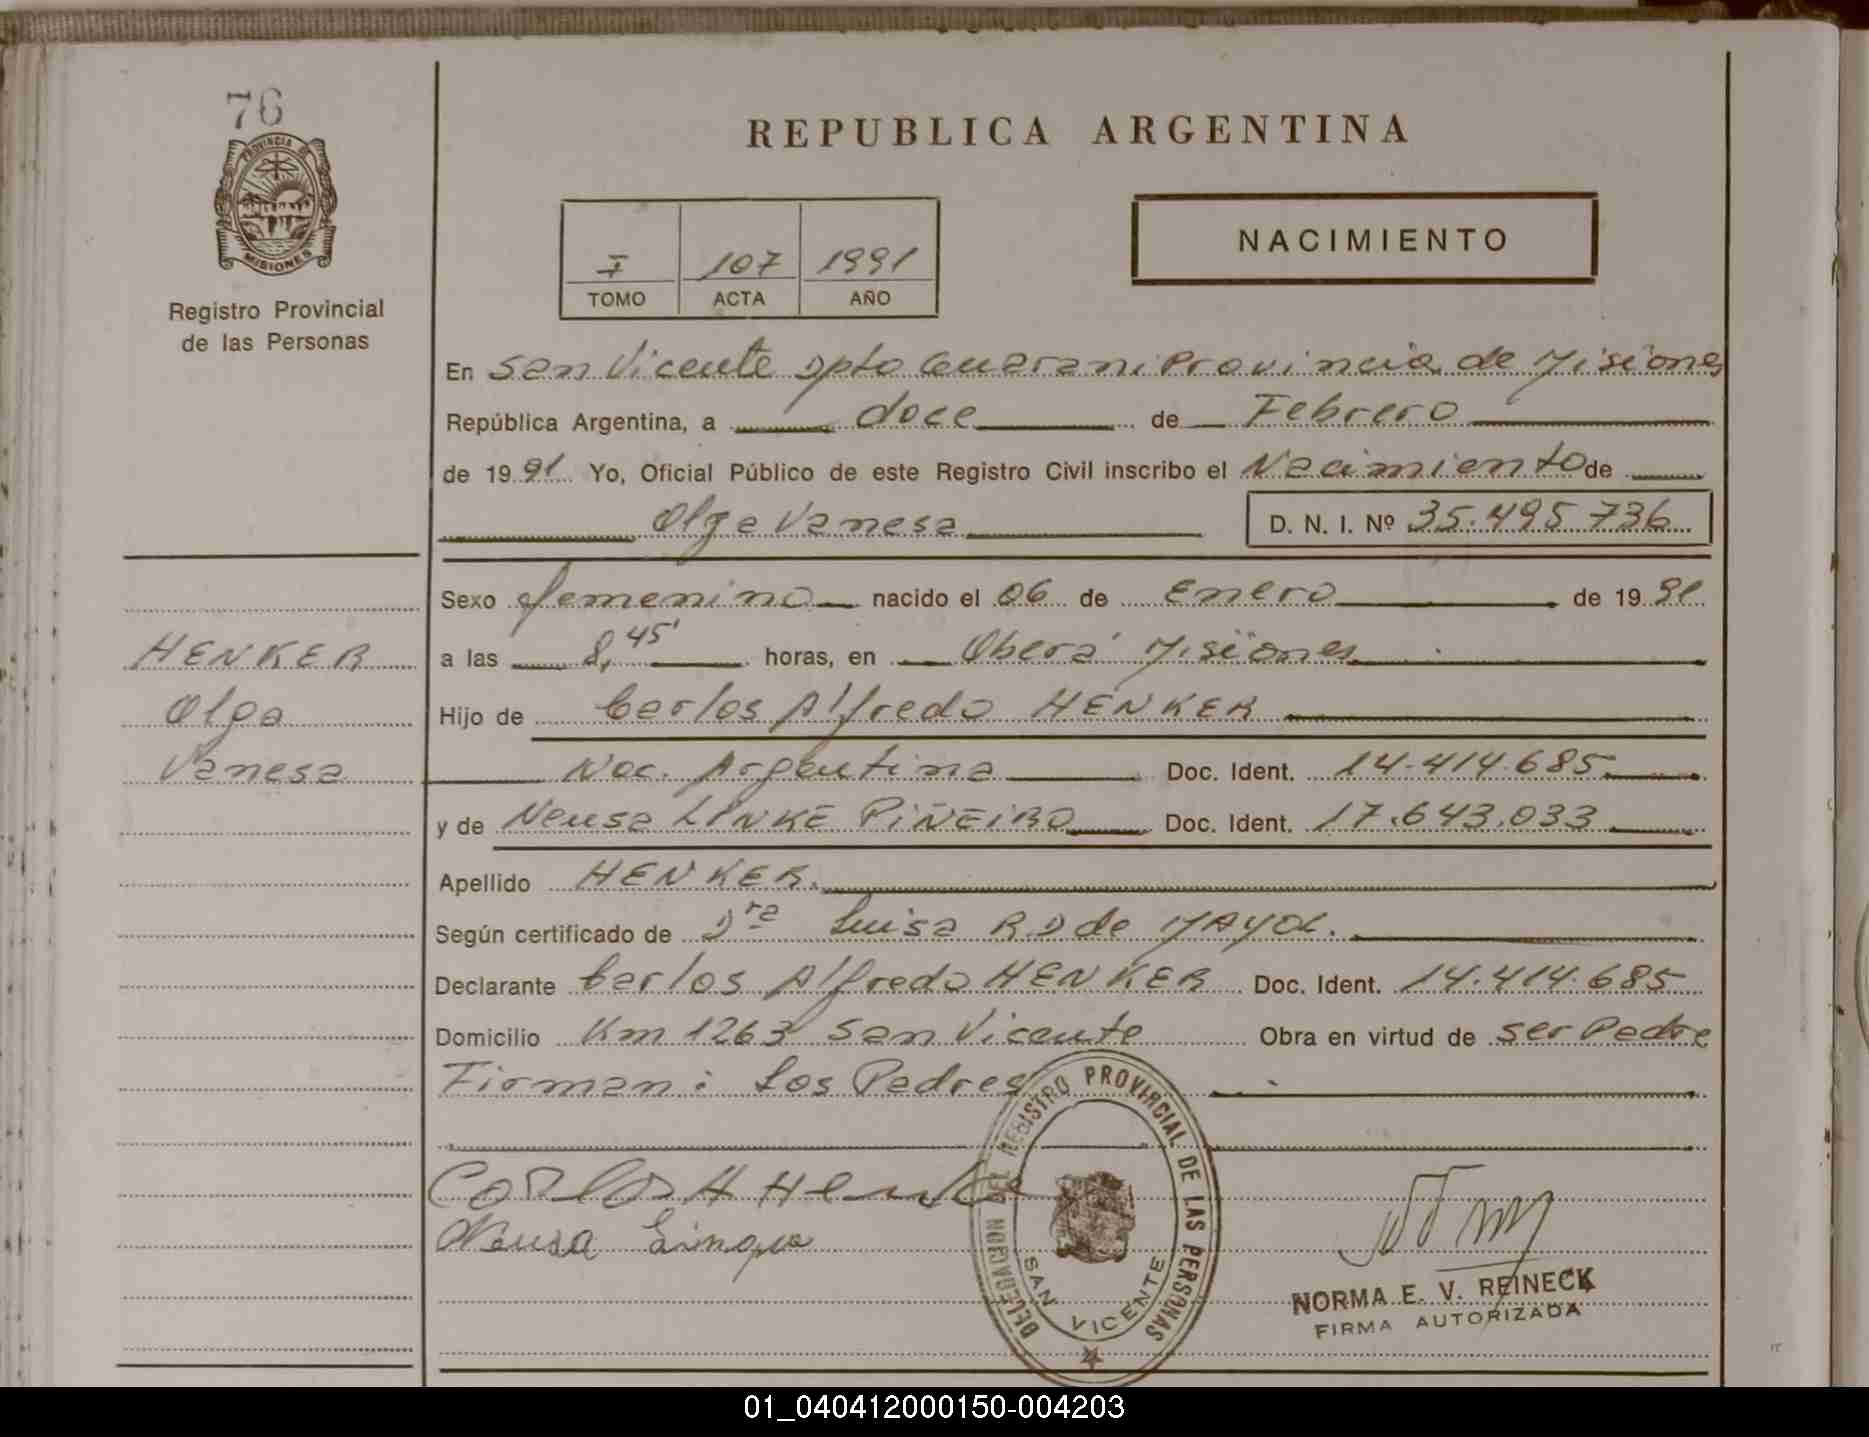 76
PROVINCIA DE
MISIONES
Registro Provincial
de las Personas
REPUBLICA ARGENTINA
I 107 1991
TOMO ACTA AÑO
NACIMIENTO
En San Vicente Dpto Guarani Provincia de Misiones
República Argentina, a doce de Febrero
de 1991 Yo, Oficial Público de este Registro Civil inscribo el Nacimiento de
Olga Vanesa D. N. I. Nº 35.495.736
Sexo femenino nacido el 06 de Enero de 1991
HENKER
Olga
Vanesa
a las 8,45' horas, en Oberá Misiones
Hijo de Carlos Alfredo HENKER
Nac. Argentina Doc. Ident. 14.414.685
y de Neusa LINKE PIÑEIRO Doc. Ident. 17.643.033
Apellido HENKER.
Según certificado de Dra Luisa R.D de MAYOL.
Declarante Carlos Alfredo HENKER Doc. Ident. 14.414.685
Domicilio Km 1263 San Vicente Obra en virtud de ser Padre
Firman: Los Padres
Carlos A Henke
Neusa Linque
DELEGACION DEL REGISTRO PROVINCIAL DE LAS PERSONAS
SAN VICENTE
NORMA E. V. REINECK
FIRMA AUTORIZADA
01_040412000150-004203